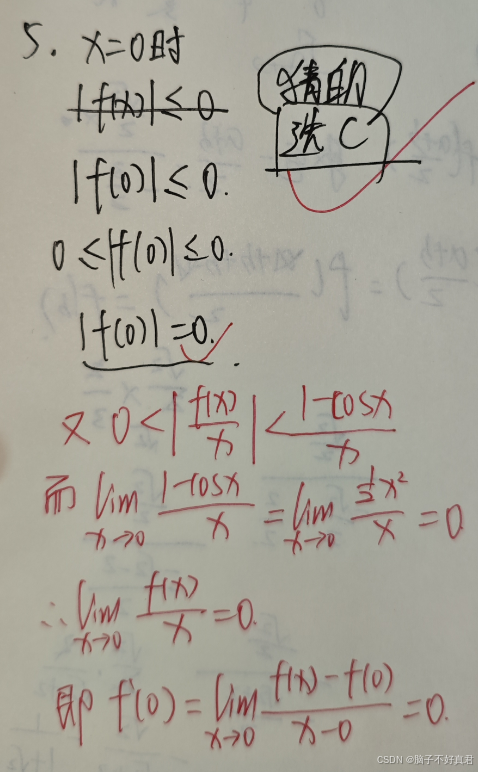 5. x=0时
|f(x)|≤0
猜的
选 C
|f(0)|≤0.
0≤|f(0)|≤0.
|f(0)|=0.
又 0<|f(x)/x|<(1-cosx)/x
而 lim x→0 (1-cosx)/x = lim x→0 (½x²)/x =0
∴ lim x→0 f(x)/x =0.
即 f'(0)= lim x→0 (f(x)-f(0))/(x-0) =0.
CSDN @脑子不好真君